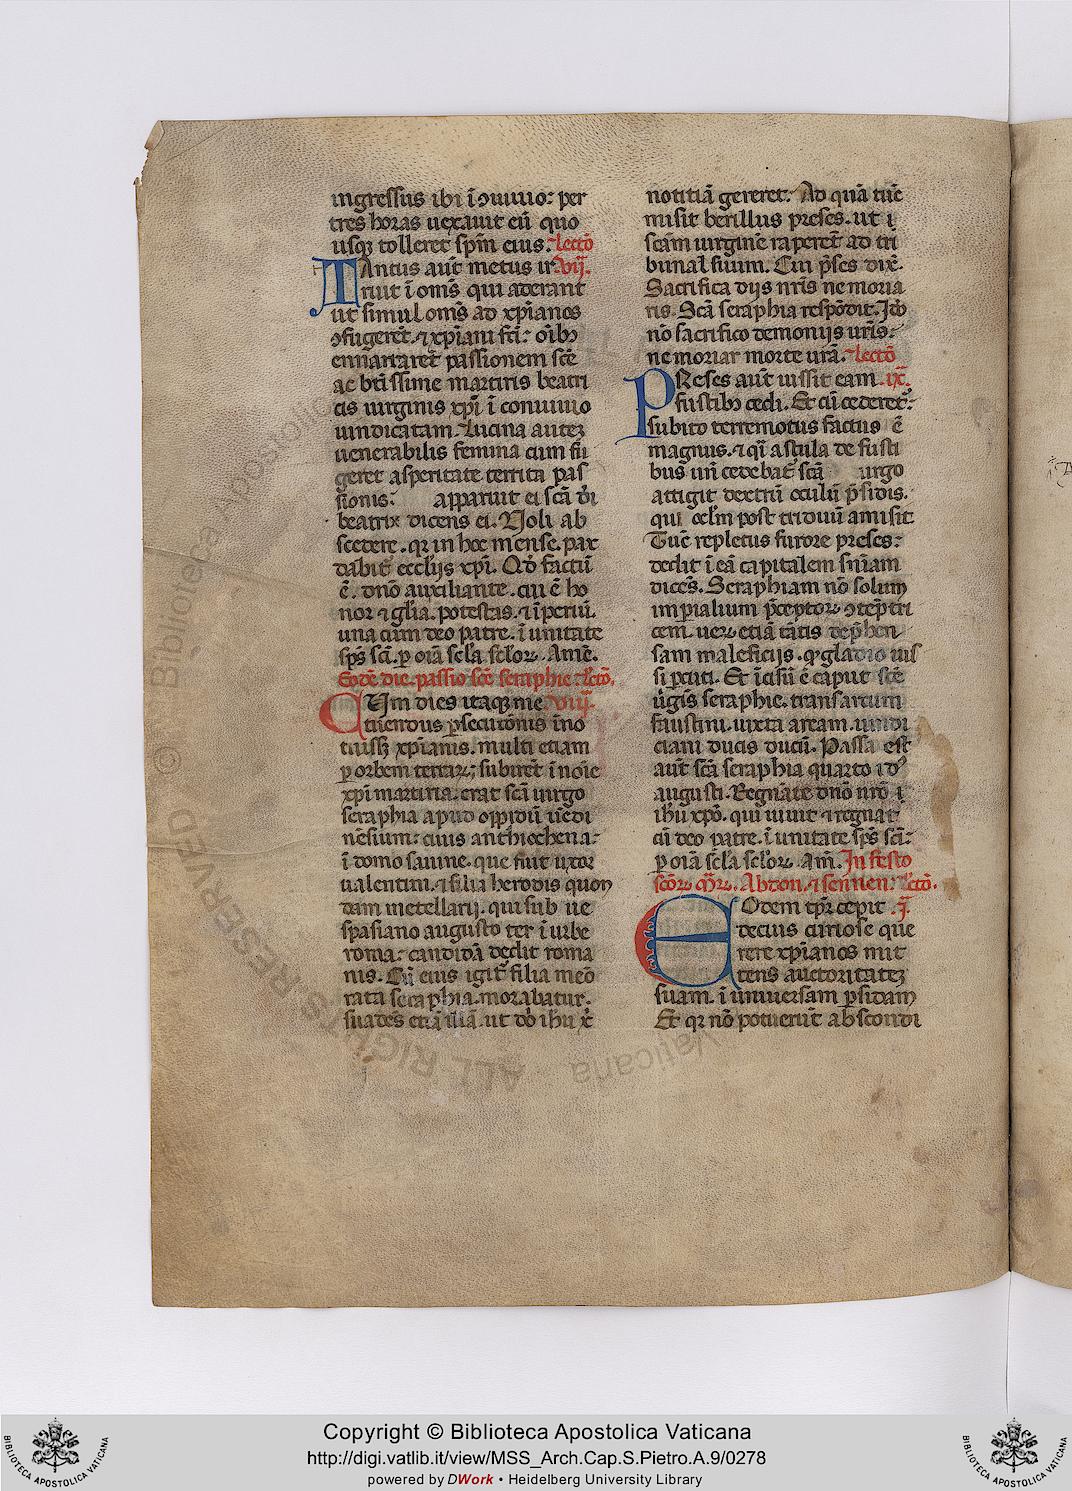 ingressus ibi ĩ ɔuiuio: per
tres horas uexauit eũ quo
usqʒ tolleret sp̃m eius: lectõ
TAntus aut̃ metus ir vij.
ruit ĩ om̃s qui aderant
ut simul om̃s ad xp̃ianos
ɔfugeret̃. ⁊ xp̃iani fc̃i: oĩbʒ
ennarraret̃ passionem sc̃e
ac bt̃issime martiris beatri
cis uirginis xp̃i ĩ conuiuio
uindicatam. Lucina autez
uenerabilis femina cum fu
geret asperitate territa pas
sionis: apparuit ei sc̃a
beatrix dicens ei. Noli ab
scedere. qꝛ in hoc mense. pax
dabit̃ eccl̃ijs xp̃i. Qd̃ factũ
ẽ. dño auxiliante. cui ẽ ho
nor ⁊ gl̃ia. potestas. ⁊ ĩperiũ.
una cum deo patre. ĩ unitate
sp̃s sc̃i. ꝑ oĩa sc̃la sc̃loꝝ. Amẽ.
Eodẽ die. passio sc̃e seraphie. lc̃tõ.
CUm dies itaqʒ me viij.
tuendus ꝑsecutõnis ĩno
tuissʒ xp̃ianis. multi etiam
ꝑ orbem terraꝝ; subiret̃ ĩ noĩe
xp̃i martiria. erat sc̃a uirgo
seraphia apud oppidũ uẽdi
nẽsium: ciuis anthiochena:
ĩ domo sauine. que fuit uxor
ualentini. ⁊ filia herodis quon
dam metellarij. qui sub ue
spasiano augusto ter ĩ urbe
roma: candidã dedit roma
nis. Cũ eius igit̃ filia meõ
rata seraphia. morabatur.
suadẽs etiã illã. ut dõ ihũ x̃
notitiã gereret. Ad quã tũc
misit berillus preses. ut ĩ
sc̃am uirginẽ raperet̃ ad tri
bunal suum. Cui p̃ses dix̃.
Sacrifica dijs nr̃is ne moria
ris. Sc̃a seraphia respõdit. Id̃o
nõ sacrifico demonijs ur̃is:
ne moriar morte ur̃a. lectõ
PReses aut̃ iussit eam. ix.
fustibʒ cedi. Et cũ cederet̃:
subito terremotus factus ẽ
magnus. ⁊ qĩ astula de fusti
bus uñ cedebat̃ sc̃a uirgo
attigit dextrũ oculũ p̃sidis.
qui ocl̃m post triduũ amisit.
Tũc repletus furore preses:
dedit ĩ eã capitalem sñiam
dicẽs. Seraphiam nõ solum
imperialium p̃ceptoꝝ ɔtẽptri
cem. ueꝝ etiã tãtis dep̃hen
sam maleficijs. gladio ius
si ꝑcuti. Et ĩcisũ ẽ caput sc̃e
ũginis seraphie. trans arcum
faustini. iuxta aream. uindi
ciani ducis ducũ. Passa est
aut̃ sc̃a seraphia quarto id̃
augusti. Regnãte dño nr̃o ĩ
ihũ xp̃o. qui uiuit ⁊ regnat
cũ deo patre. ĩ unitate sp̃s sc̃i:
ꝑ oĩa sc̃la sc̃loꝝ. Am̃. In festo
sc̃oꝝ m̃ꝝ. Abdon. ⁊ sennen. lc̃tõ.
EOdem tp̃r cepit. j.
decius curiose que
rere xp̃ianos mit
tens auctoritatez
suam. ĩ uniuersam ꝑsidam
Et qꝛ nõ potuerũt abscondi
Copyright © Biblioteca Apostolica Vaticana
http://digi.vatlib.it/view/MSS_Arch.Cap.S.Pietro.A.9/0278
powered by DWork • Heidelberg University Library